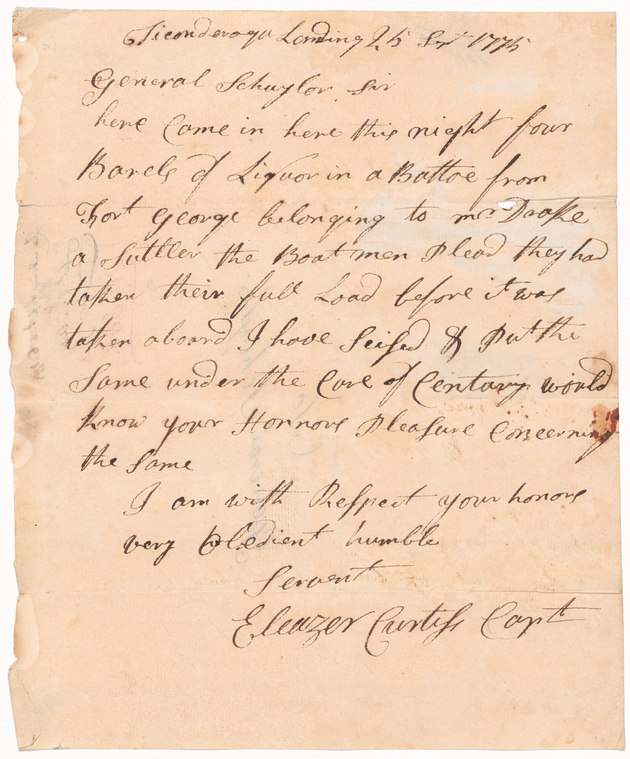 Ticonderoga Landing 25 Sept 1775
General Schuylor Sir
here Came in here this night four
Barels of Liquor in a Battoe from
Fort George belonging to mr Drake
a Suttler the Boatmen Plead they had
taken their full Load before it was
taken aboard I have Seised & Put the
Same under the Care of Centary would
Know your Honnors Pleasure Concerning
the Same
I am with Respect your honors
very obedient humble
Servent
Eleazer Curtiss Capt